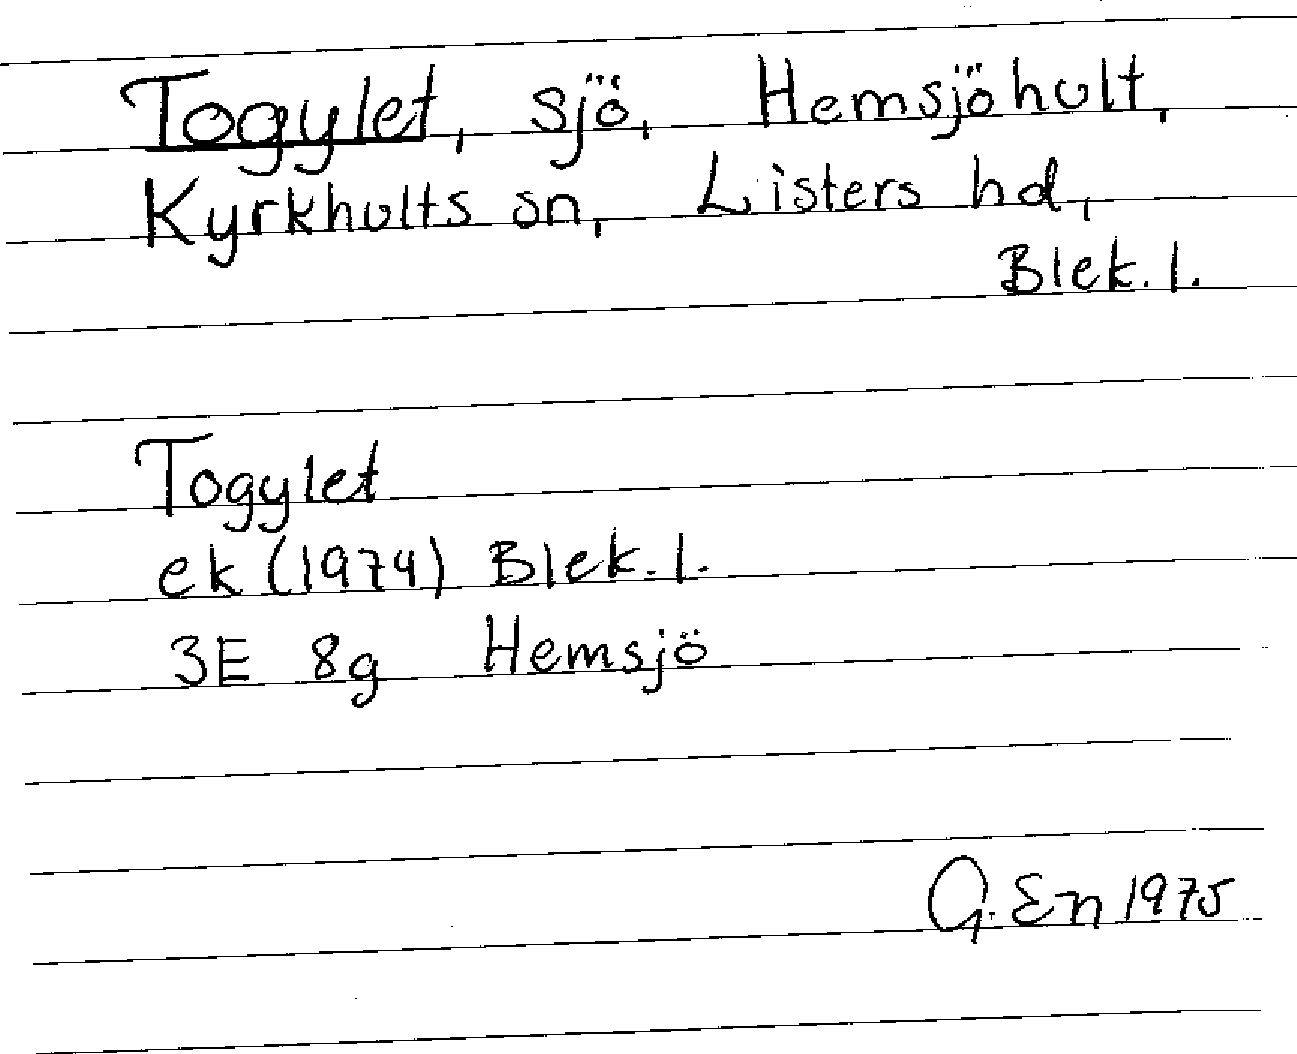 Togylet, sjö, Hemsjöhult,
Kyrkhults sn, Listers hd,
Blek. l.
Togylet
ek (1974) Blek. l.
3E 8g Hemsjö
G. En 1975